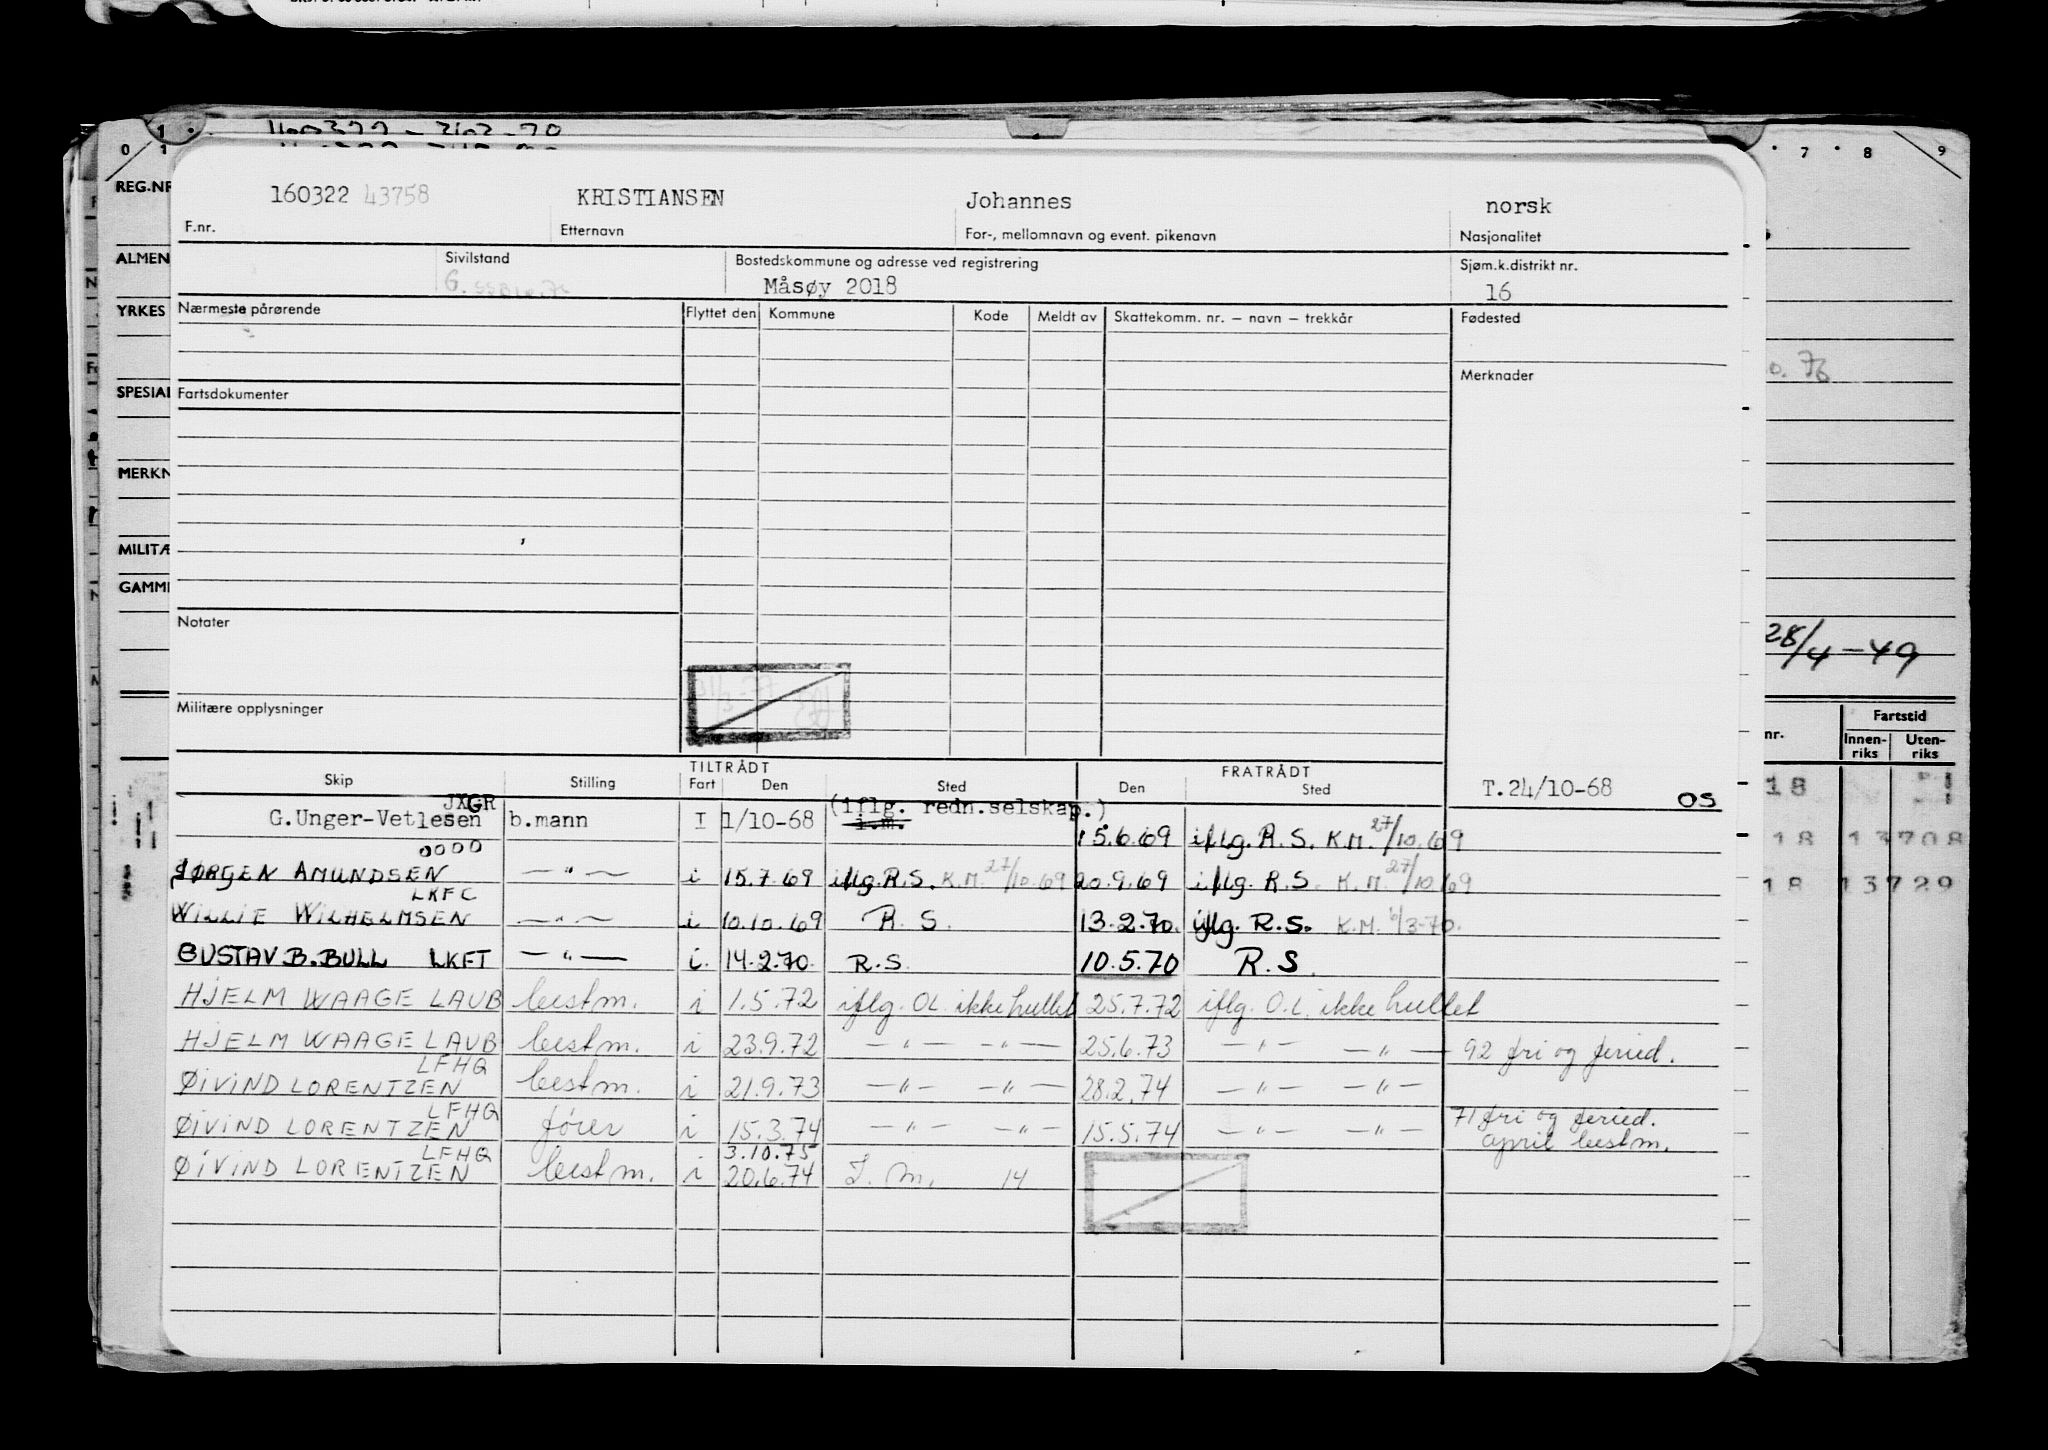 0 1 7 8 9
REG.NR
ALMEN
YRKES
SPESIAL
MERKN
MILITÆ
GAMM
160322 43758 KRISTIANSEN Johannes norsk
F.nr. Etternavn For-, mellomnavn og event. pikenavn Nasjonalitet
Sivilstand Bostedskommune og adresse ved registrering Sjøm.k.distrikt nr.
G. Måsøy 2018 16
Nærmeste pårørende Flyttet den Kommune Kode Meldt av Skattekomm. nr. — navn — trekkår Fødested
76
Merknader
Fartsdokumenter
Notater
28/4-49
Militære opplysninger
nr. Fartstid
Innen-riks Uten-riks
TILTRÅDT FRATRÅDT
Skip Stilling Fart Den Sted Den Sted
T.24/10-68 OS
18
JXGR (iflg. redn.selskap.)
G.Unger-Vetlesen b.mann I 1/10-68 i.m. 15.6.69 iflg. R.S. K.M. 27/10.69
18 13708
OOOO
JØRGEN AMUNDSEN —"— i 15.7.69 iflg. R.S. K.M. 27/10.69 20.9.69 iflg. R.S. K.M. 27/10.69
18 13729
LKFC
WILLIE WILHELMSEN —"— i 10.10.69 R.S. 13.2.70. iflg. R.S. K.M. /3-70.
GUSTAV B. BULL LKFT —"— i. 14.2.70. R.S. 10.5.70 R.S.
HJELM WAAGE LAUB bestm. i 1.5.72 iflg. OL ikke hullet 25.7.72 iflg. O.L. ikke hullet
HJELM WAAGE LAUB bestm. i 23.9.72 —"— —"— 25.6.73 —"— —"— 92 fri og feried.
LFHG
ØIVIND LORENTZEN bestm. i 21.9.73 —"— —"— 28.2.74 —"— —"—
LFHG
ØIVIND LORENTZEN fører i 15.3.74 —"— —"— 15.5.74 —"— —"— 71 fri og feried.
april bestm.
LFHG 3.10.75
ØIVIND LORENTZEN bestm. i 20.6.74 I. m. 14